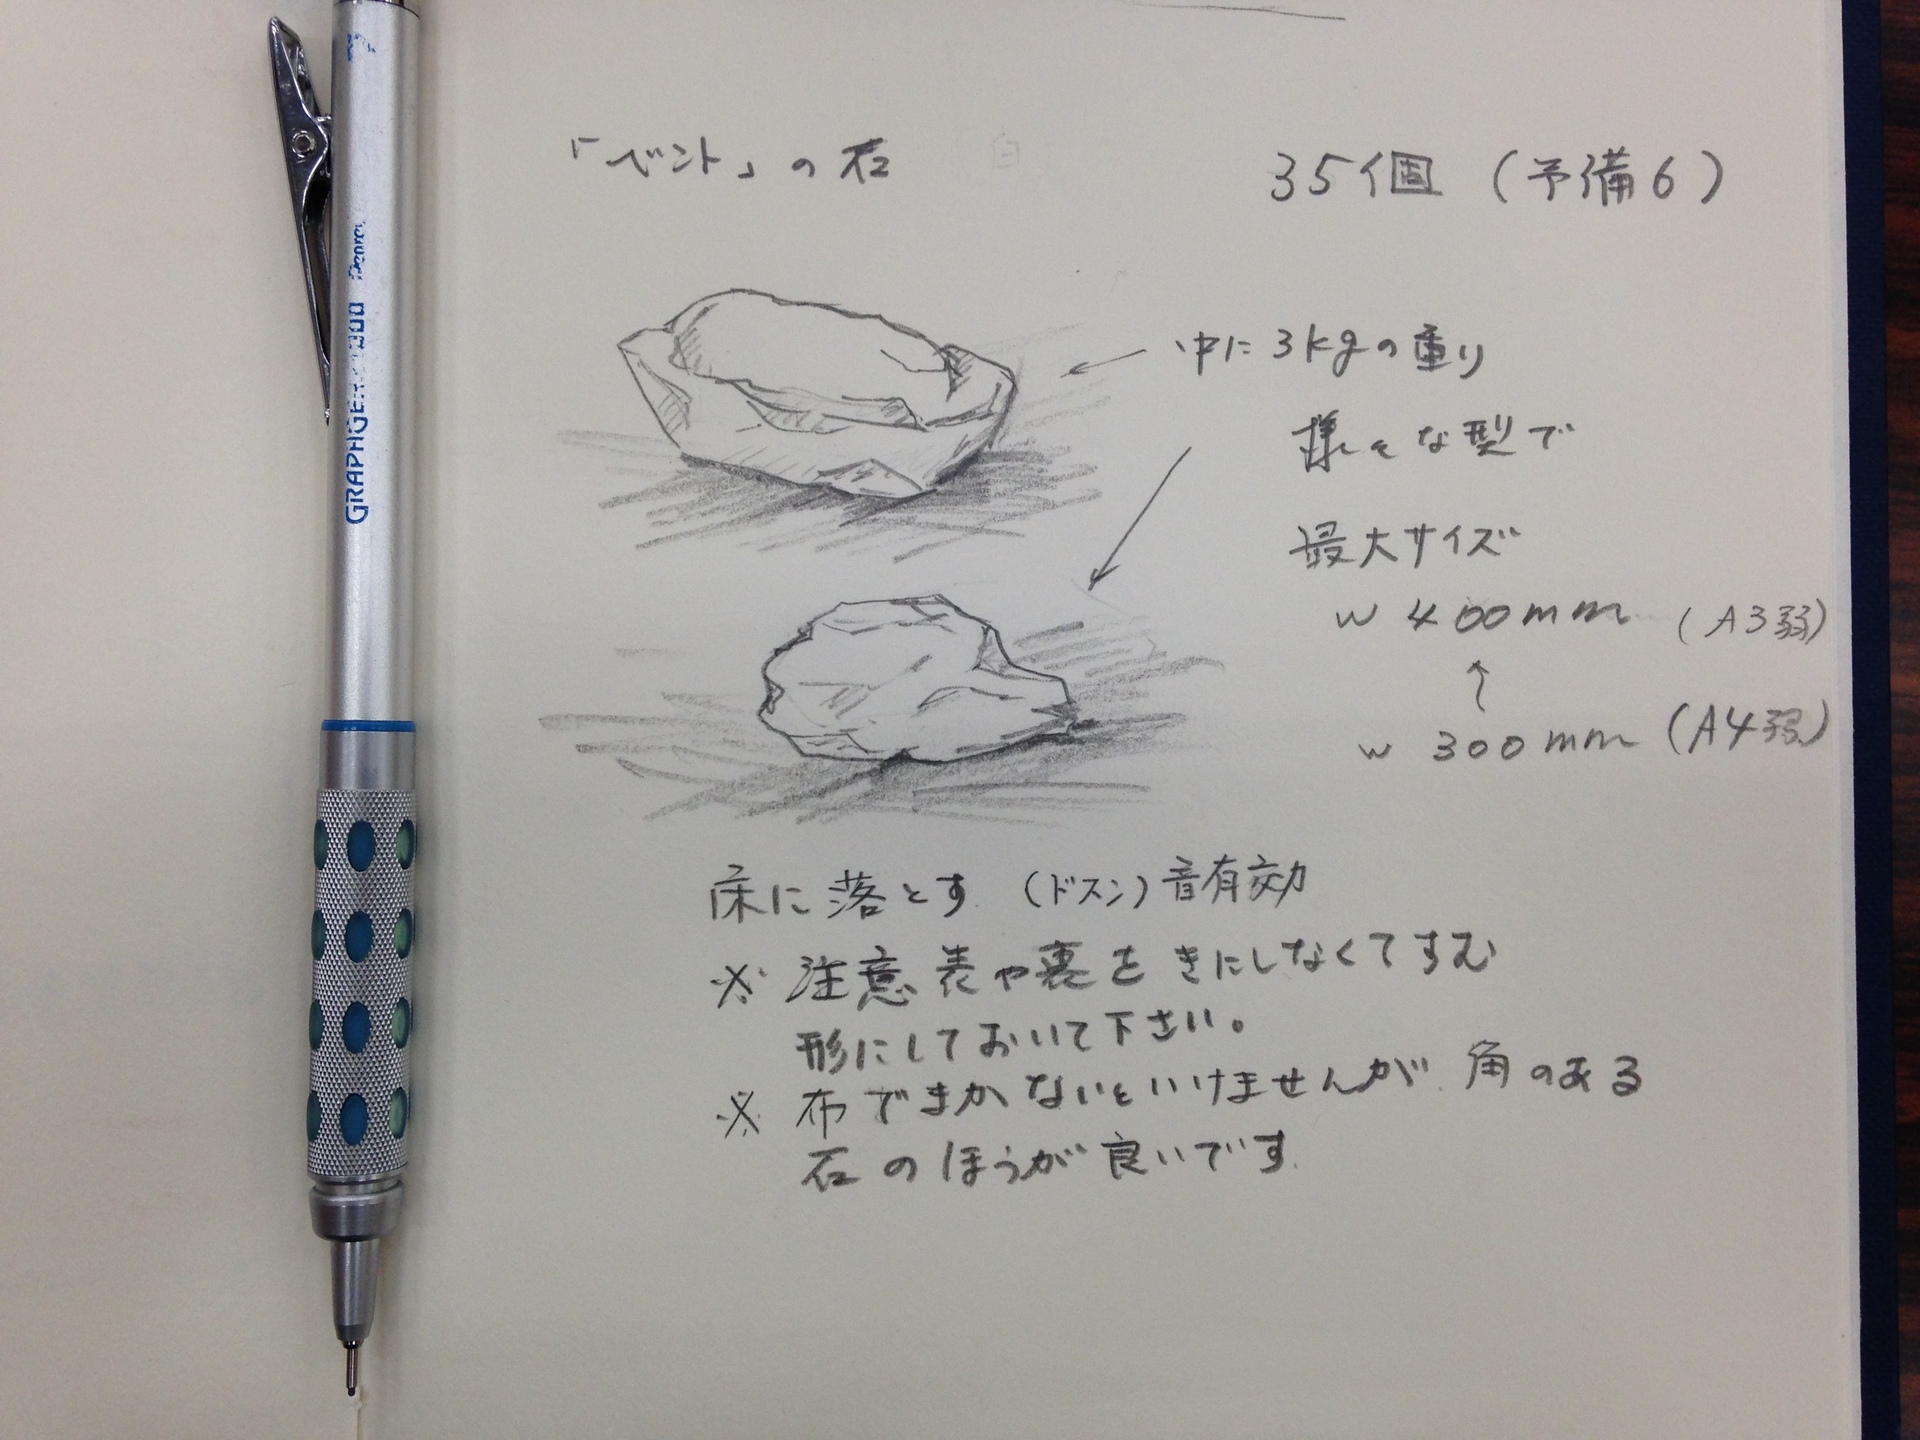 「ベント」の石
35個 (予備6)
中に3kgの重り
様々な型で
最大サイズ
w 400mm (A3弱)
↑
w 300mm (A4弱)
床に落とす (ドスン)音有効
※ 注意 表や裏をきにしなくてすむ
形にしておいて下さい。
※ 布でまかないといけませんが 角のある
石のほうが良いです.
GRAPHGEAR 1000 Pentel